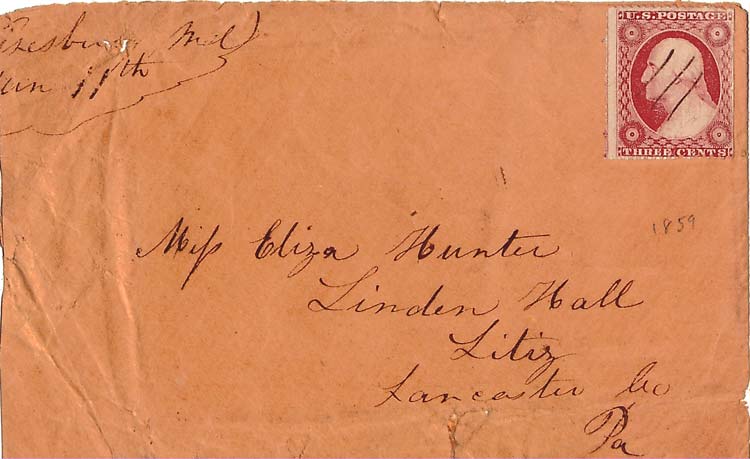 Md
11th
U.S. POSTAGE
THREE CENTS
1859
Miſs Eliza Hunter
Linden Hall
Litiz
Lancaster Co
Pa